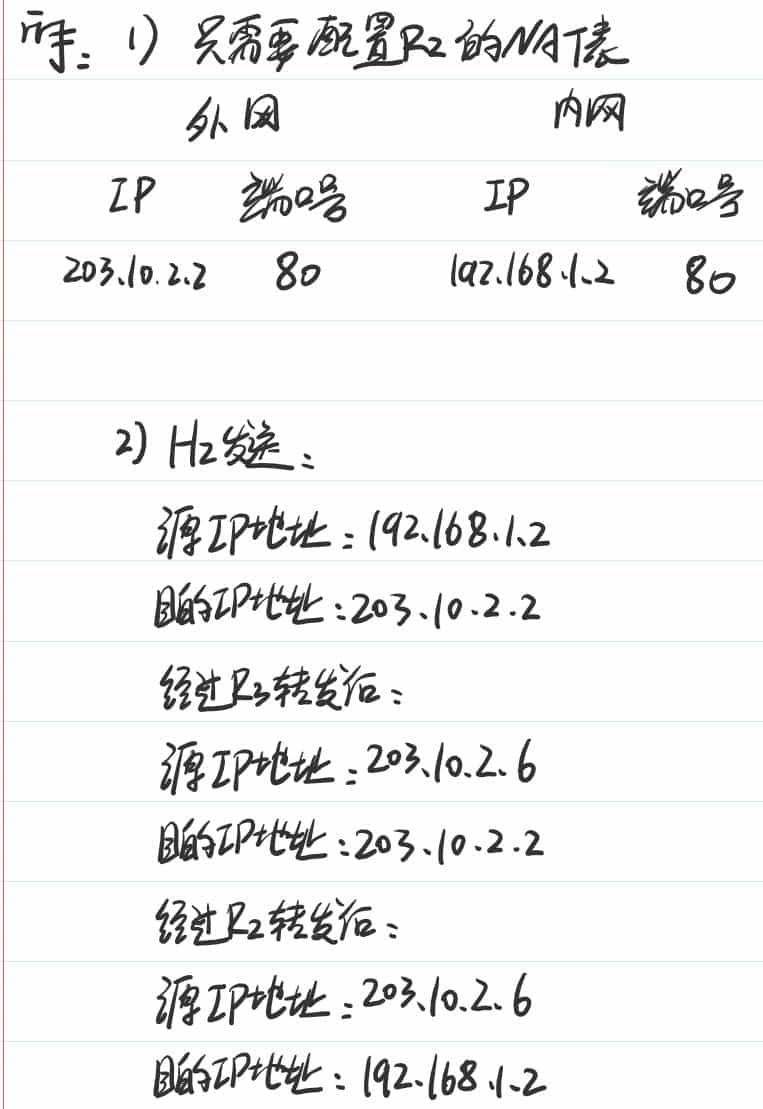 解: 1) 只需要配置R2的NAT表
外网 内网
IP 端口号 IP 端口号
203.10.2.2 80 192.168.1.2 80
2) H2发送:
源IP地址:192.168.1.2
目的IP地址:203.10.2.2
经过R3转发后:
源IP地址:203.10.2.6
目的IP地址:203.10.2.2
经过R2转发后:
源IP地址:203.10.2.6
目的IP地址:192.168.1.2